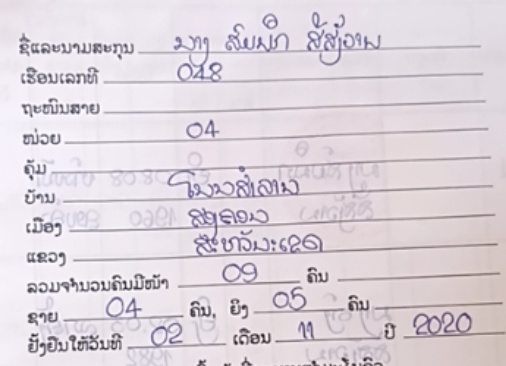 ຊື່ແລະນາມສະກຸນ ນາງ ສົມພັກ
ເຮືອນເລກທີ 048
ຖະໜົນສາຍ
ໜ່ວຍ 04
ຄຸ້ມ
ບ້ານ ໂພນສຳລານ
ເມືອງ
ແຂວງ ສະຫວັນນະເຂດ
ລວມຈຳນວນຄົນມີໜ້າ 09 ຄົນ
ຊາຍ 04 ຄົນ, ຍິງ 05 ຄົນ
ຢັ້ງຢືນໃຫ້ວັນທີ 02 ເດືອນ 11 ປີ 2020